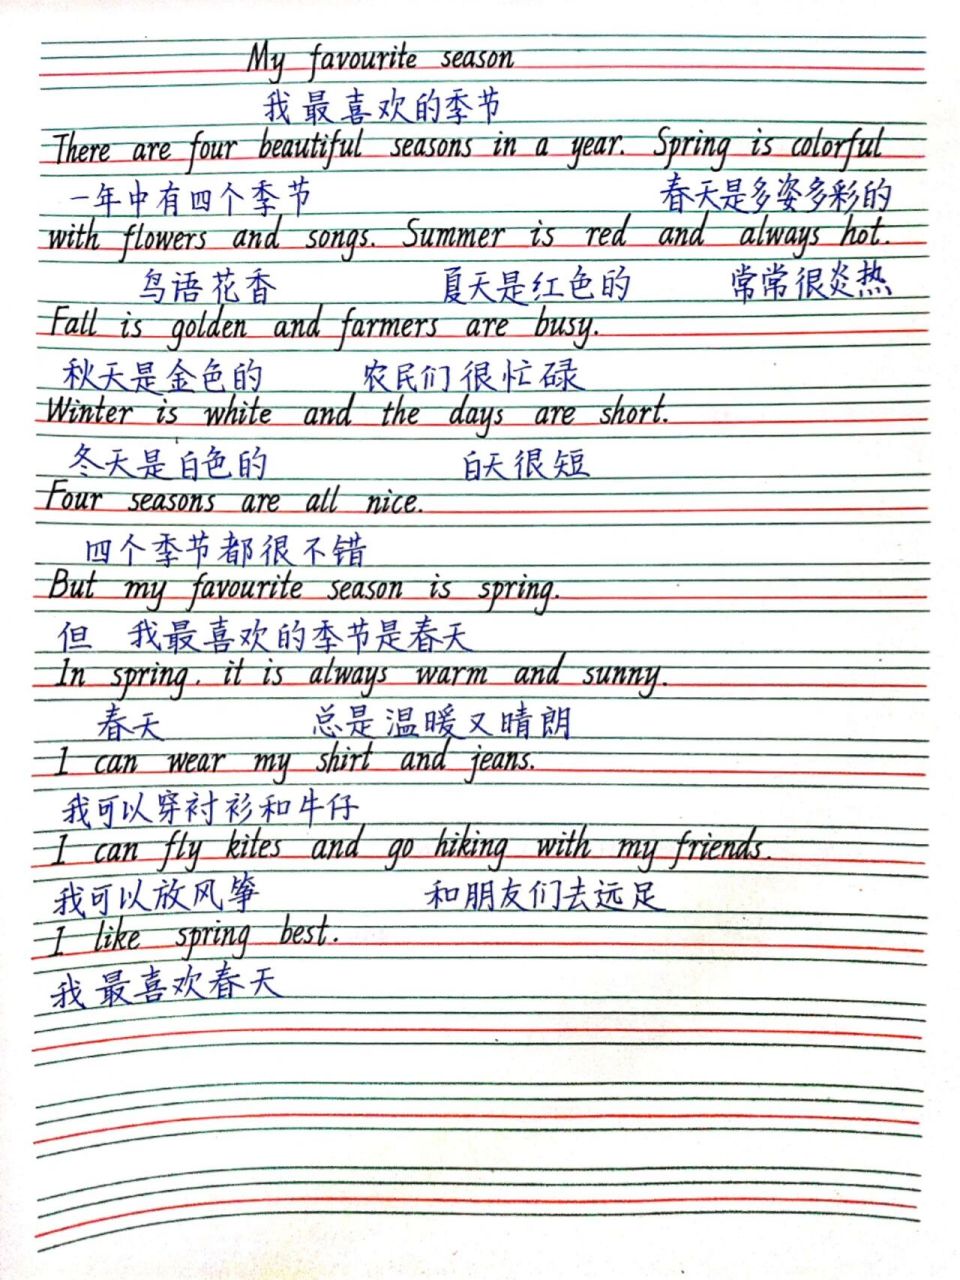 My favourite season
我最喜欢的季节
There are four beautiful seasons in a year. Spring is colorful
一年中有四个季节 春天是多姿多彩的
with flowers and songs. Summer is red and always hot.
鸟语花香 夏天是红色的 常常很炎热
Fall is golden and farmers are busy.
秋天是金色的 农民们很忙碌
Winter is white and the days are short.
冬天是白色的 白天很短
Four seasons are all nice.
四个季节都很不错
But my favourite season is spring.
但 我最喜欢的季节是春天
In spring. it is always warm and sunny.
春天 总是温暖又晴朗
I can wear my shirt and jeans.
我可以穿衬衫和牛仔
I can fly kites and go hiking with my friends.
我可以放风筝 和朋友们去远足
I like spring best.
我最喜欢春天